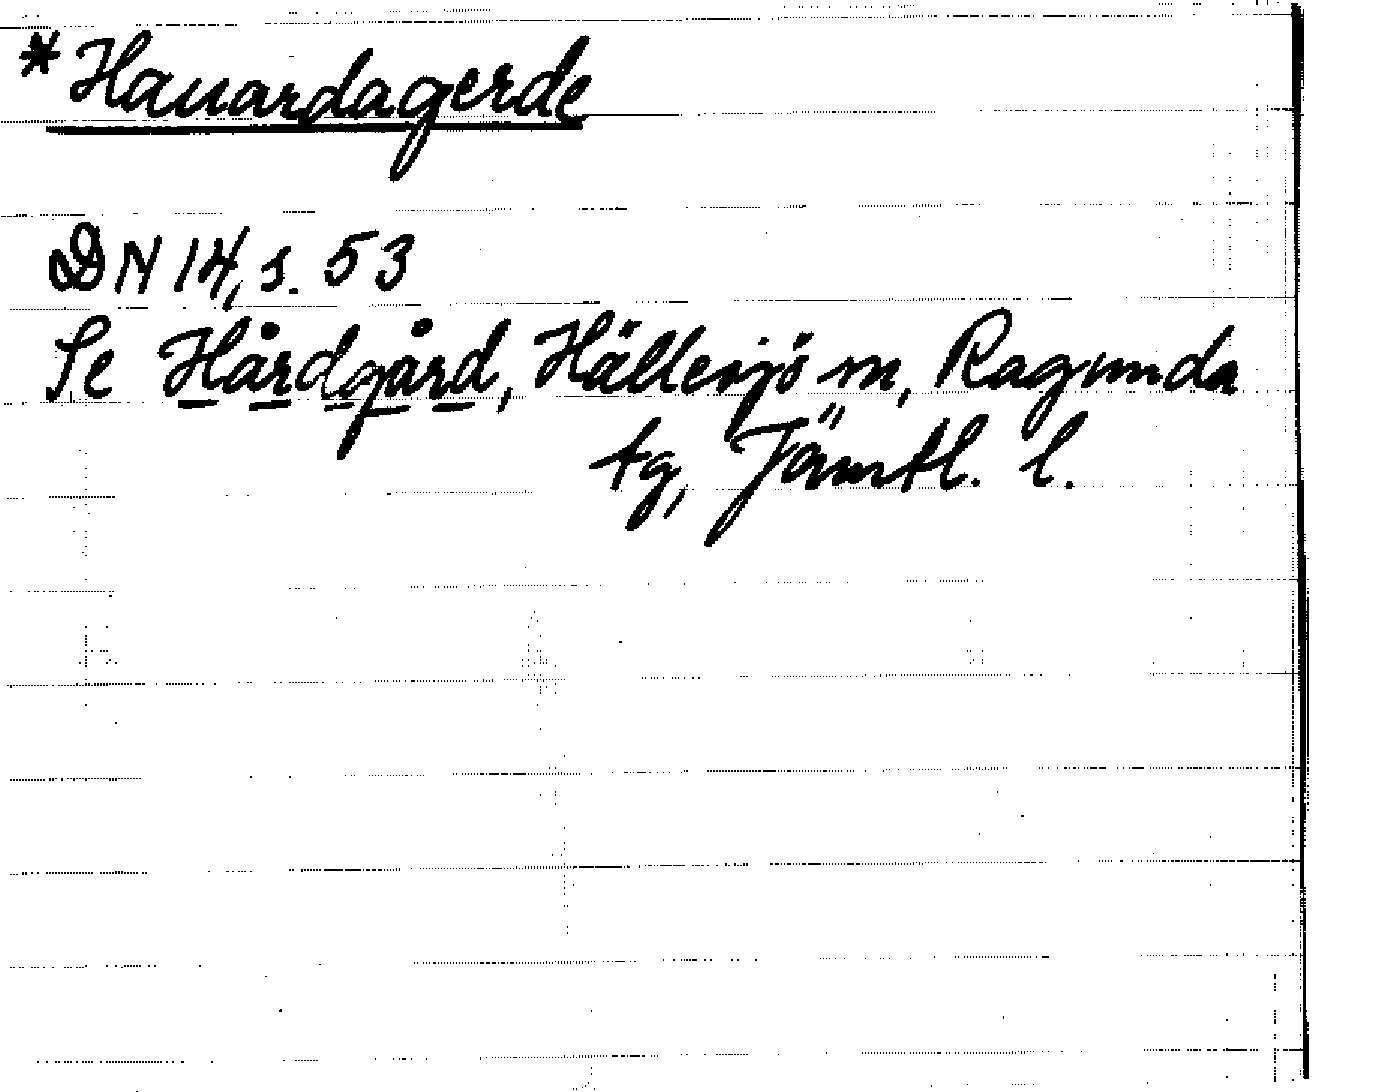 *Hauardagerde
DN 14, s. 53
Se Hårdgård, Hällesjö sn, Ragunda
tg, Jämtl. l.